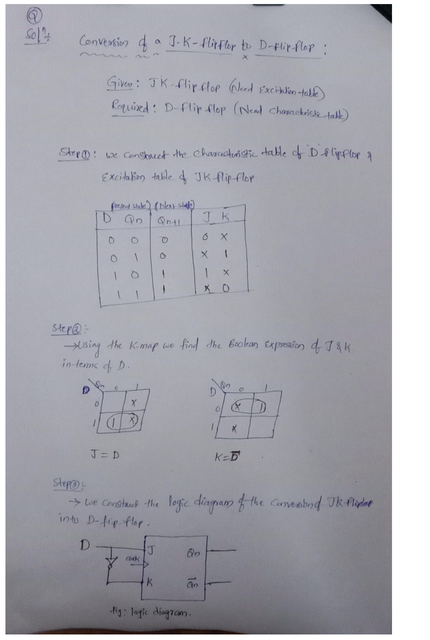 Q
Sol/:
Conversion of a J-K-flipflop to D-flipflop :
Given : JK-flipflop (Need Excitation-table)
Required : D-flipflop (Need Characteristic table)
Step① : We construct the characteristic table of 'D' flipflop &
Excitation table of JK-flip-flop
(Present state) (Next state)
D Qn Qn+1 J K
0 0 0 0 X
0 1 0 X 1
1 0 1 1 X
1 1 1 X 0
Step②:-
→ Using the K-map we find the Boolean Expression of J & K
in terms of D.
D Qn 0 1
0 X
1 1 X
J = D
D Qn 0 1
0 X 1
1 X
K = D̅
Step③:-
→ We construct the logic diagram of the conversion of JK-flipflop
into D-flip-flop.
D
J Qn
clk
K Q̅n
-fig: logic diagram.